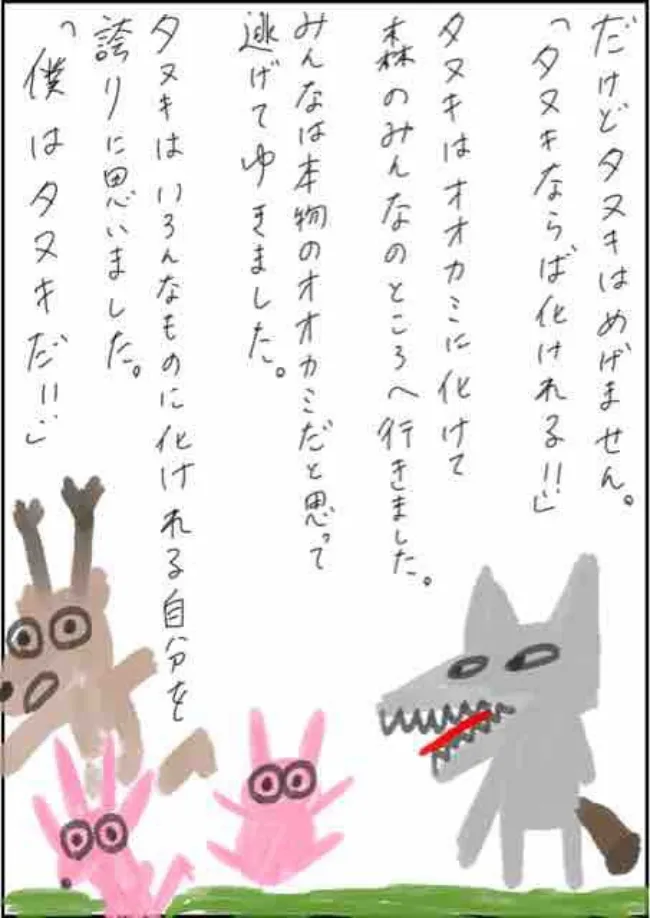 だけどタヌキはめげません。
「タヌキならば化けれる!!」
タヌキはオオカミに化けて
森のみんなのところへ行きました。
みんなは本物のオオカミだと思って
逃げてゆきました。
タヌキはいろんなものに化けれる自分を
誇りに思いました。
「僕はタヌキだ!!」